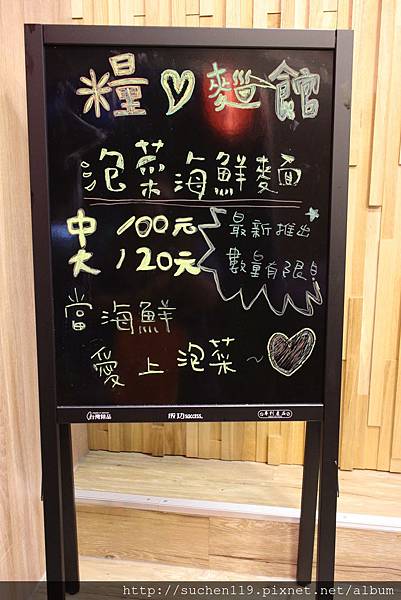 糧♡麵館
泡菜海鮮麵
中 100元
大 120元
最新推出
數量有限!
當海鮮
愛上泡菜~
成功success.
http://suchen119.pixnet.net/album